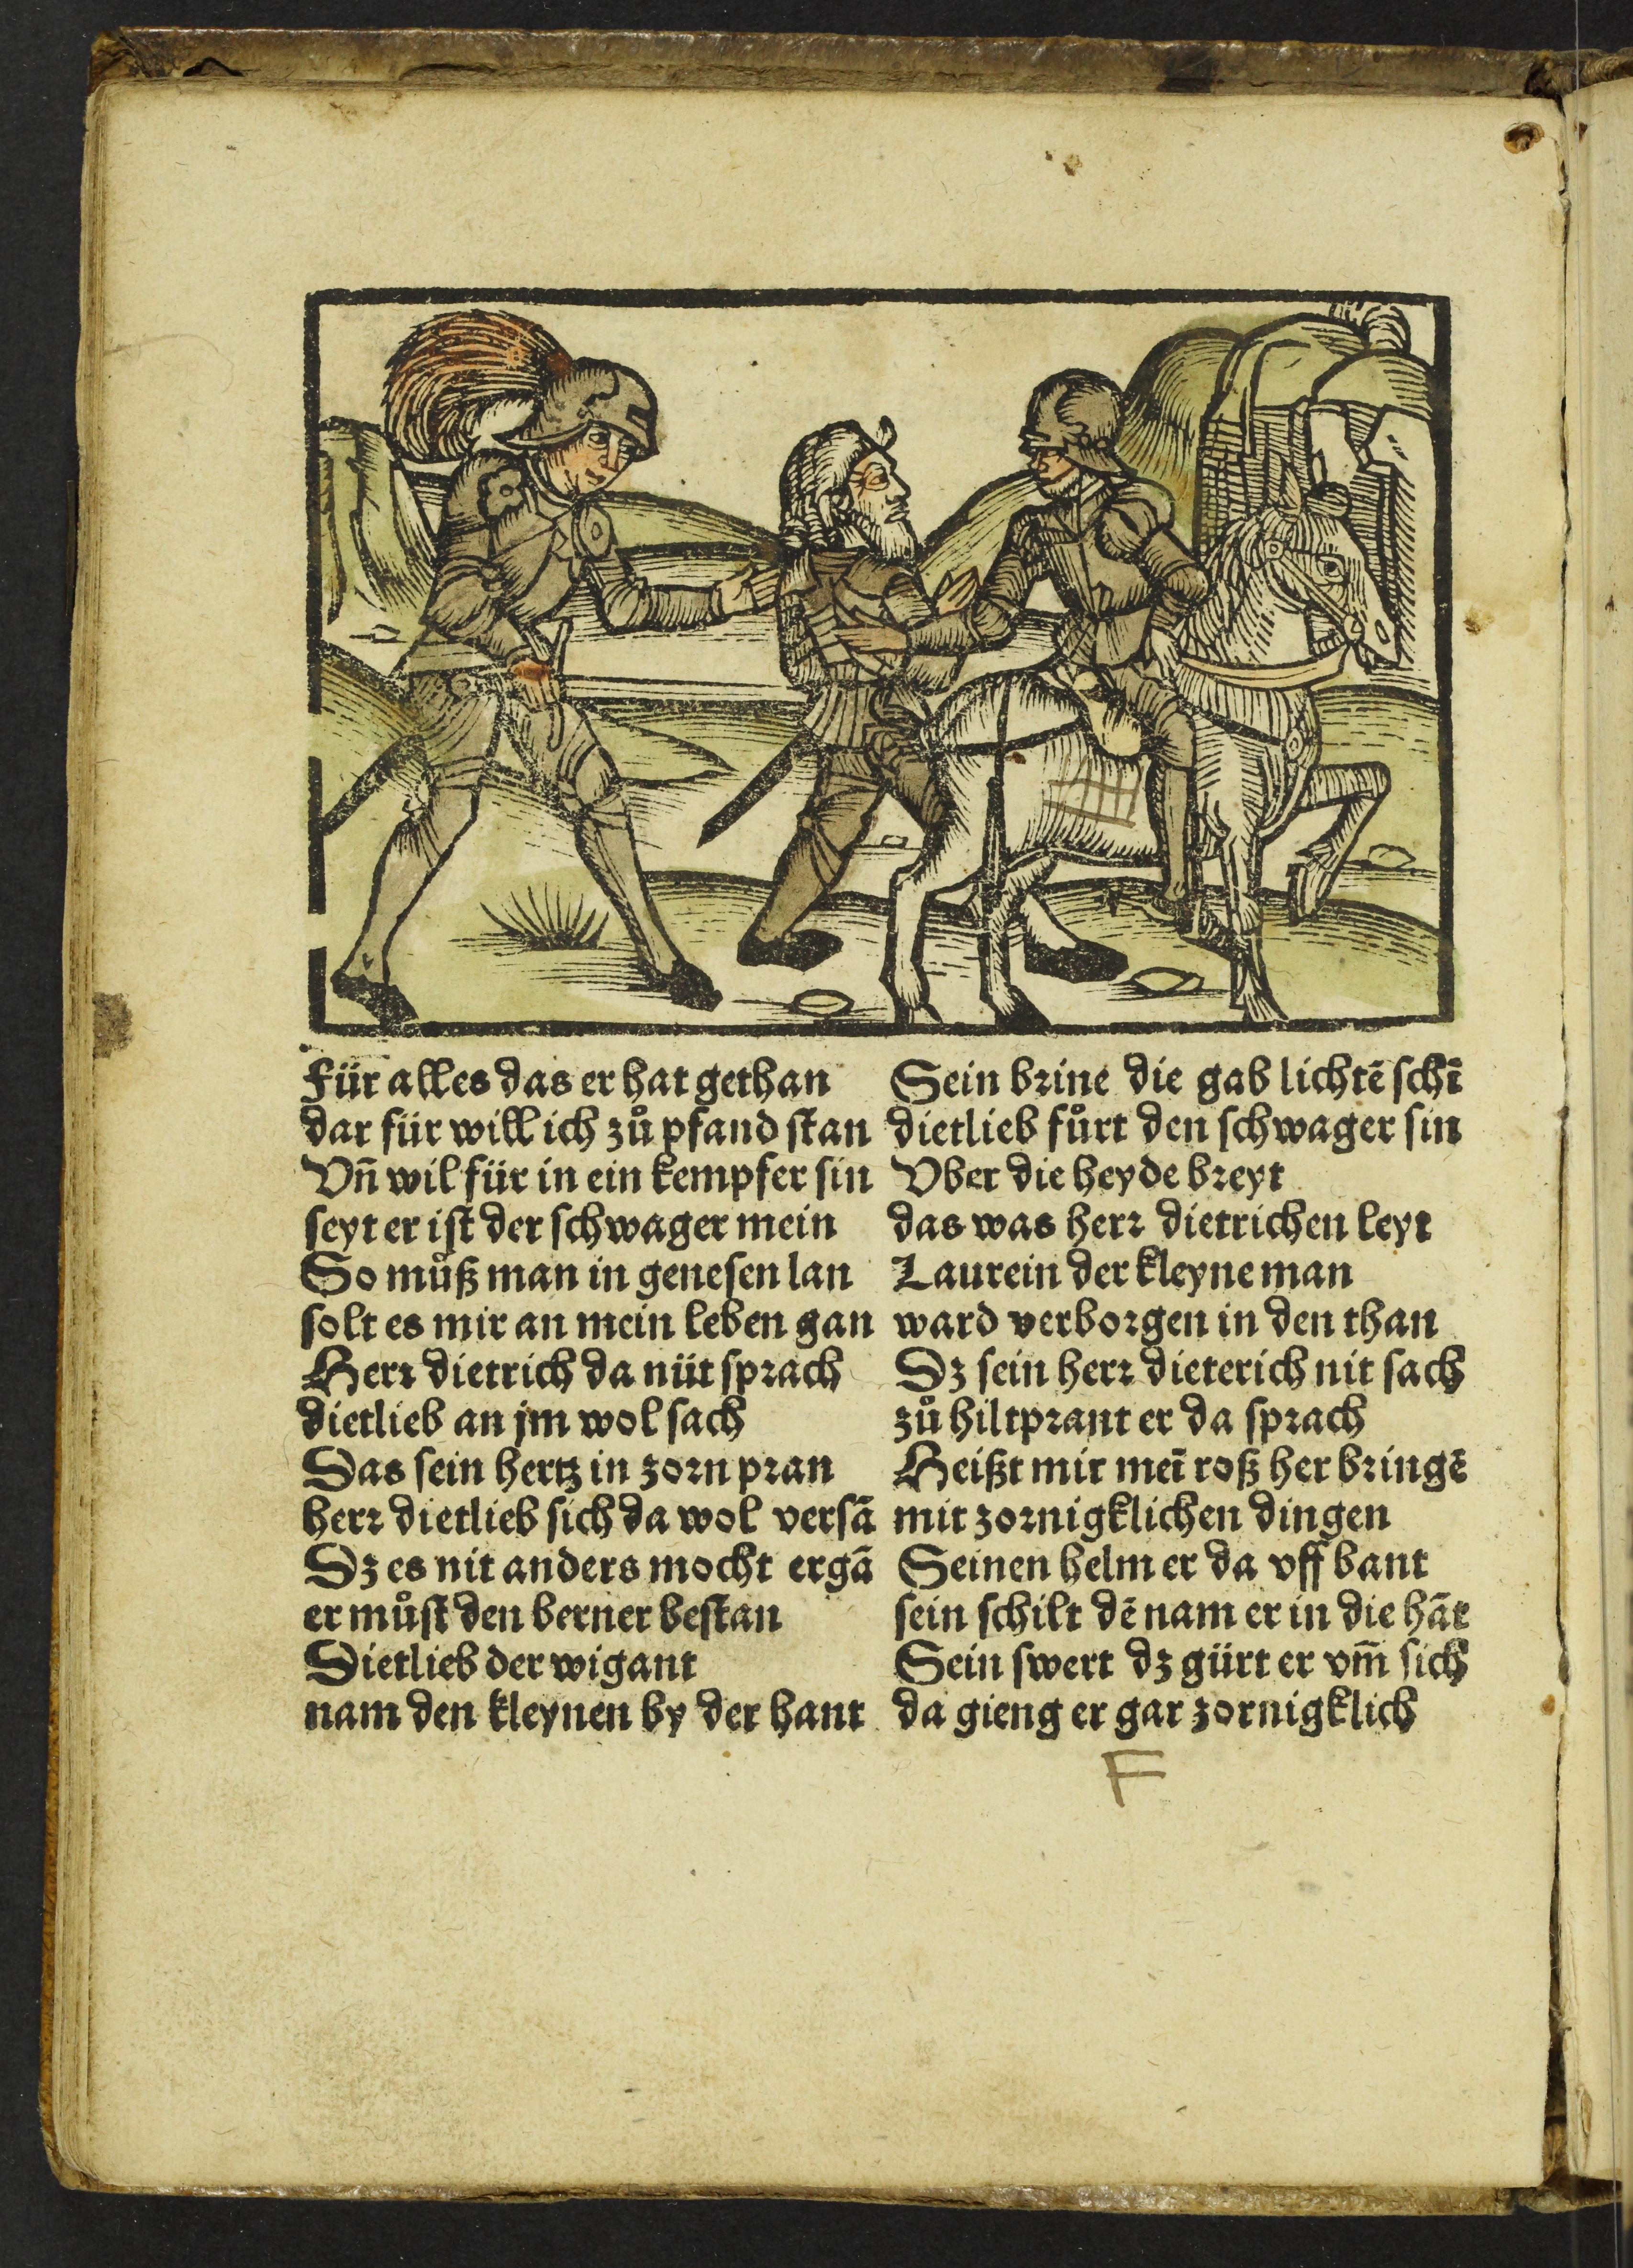 Für alles das er hat gethan
dar für will ich zů pfand stan
Vñ wil für in ein kempfer sin
seyt er ist der schwager mein
So můß man in genesen lan
solt es mir an mein leben gan
Herr dietrich da nüt sprach
dietlieb an jm wol sach
Das sein hertz in zorn pran
herr dietlieb sich da wol versā
Dz es nit anders mocht ergā
er můst den berner bestan
Dietlieb der wigant
nam den kleynen by der hant
Sein brine die gab lichtē schī
dietlieb fůrt den schwager sin
Vber die heyde breyt
das was herr dietrichen leyt
Laurein der kleyne man
ward verborgen in den than
Dz sein herr dieterich nit sach
zů hiltprant er da sprach
Heißt mir meī roß her bringē
mit zornigklichen dingen
Seinen helm er da vff bant
sein schilt dē nam er in die hāt
Sein swert dz gürt er vm̄ sich
da gieng er gar zornigklich
F